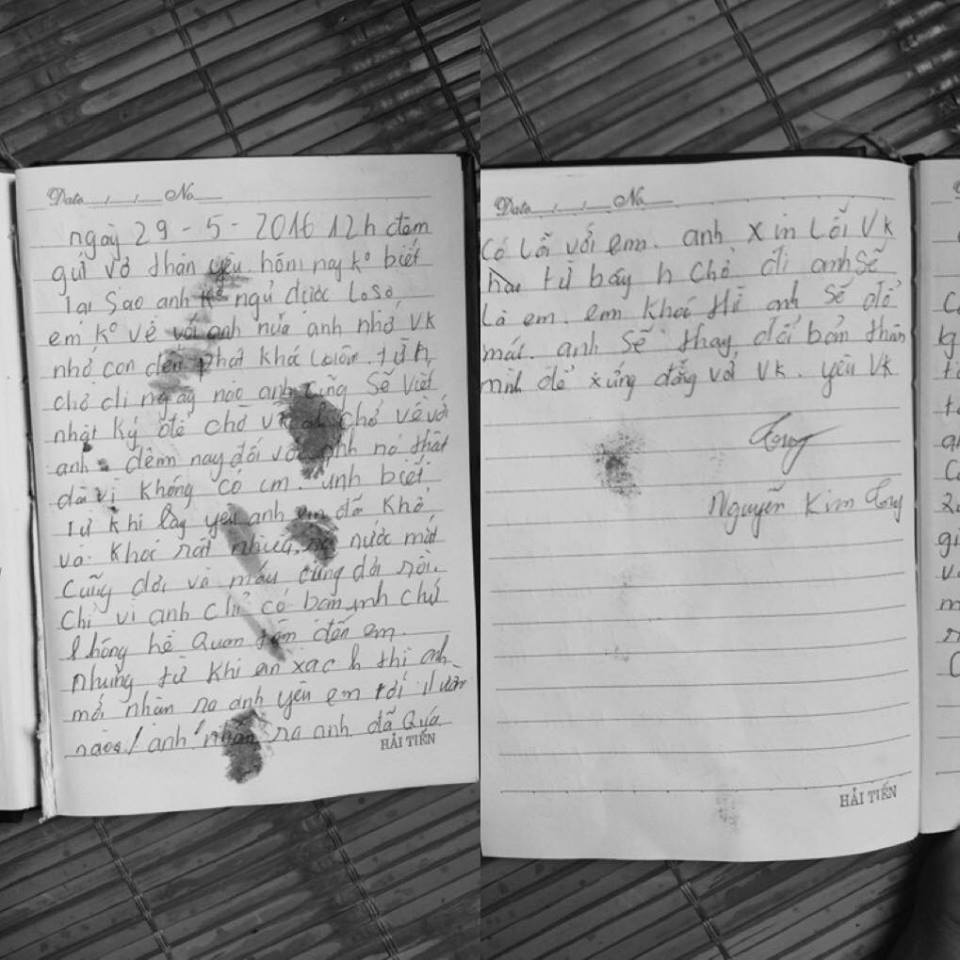 Date / / No
ngày 29 - 5 - 2016 12h đêm
gửi vở thân yêu hôm nay k° biết
tại sao anh k° ngủ được lo sợ
em k° về với anh nữa anh nhớ Vk
nhớ con đến phát khóc
chở đi ngày nào anh cũng sẽ viết
nhật ký để chờ chở về với
anh. đêm nay đối với anh nó thật
dà vị không có em. anh biết
từ khi lấy yêu anh em đã khổ
và khóc rất nhiều, nước mắt
cũng dơi và máu cũng dơi rồi.
chỉ vì anh chỉ có bản mình chứ
không hề quan tâm đến em.
nhưng từ khi en xac h thì anh
mới nhận ra anh yêu em tới
nào! anh nhận ra anh đã quá
HẢI TIẾN
Date / / No
Có lỗi với em. anh xin lỗi Vk
từ bây h chở đi anh sẽ
là em. em khóc thì anh sẽ đổ
mát. anh sẽ thay đổi bản thân
mình để xứng đắng với Vk. yêu Vk
Nguyễn Kim
HẢI TIẾN